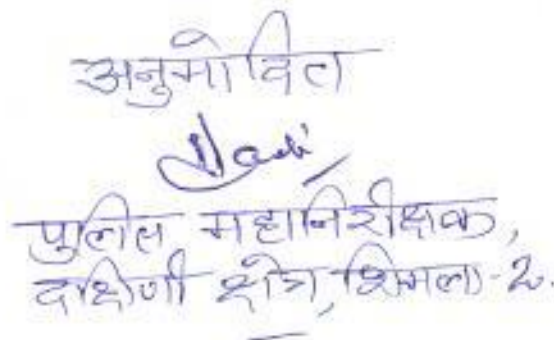 अनुमोदित
पुलिस महानिरीक्षक,
दक्षिणी क्षेत्र, शिमला-2.